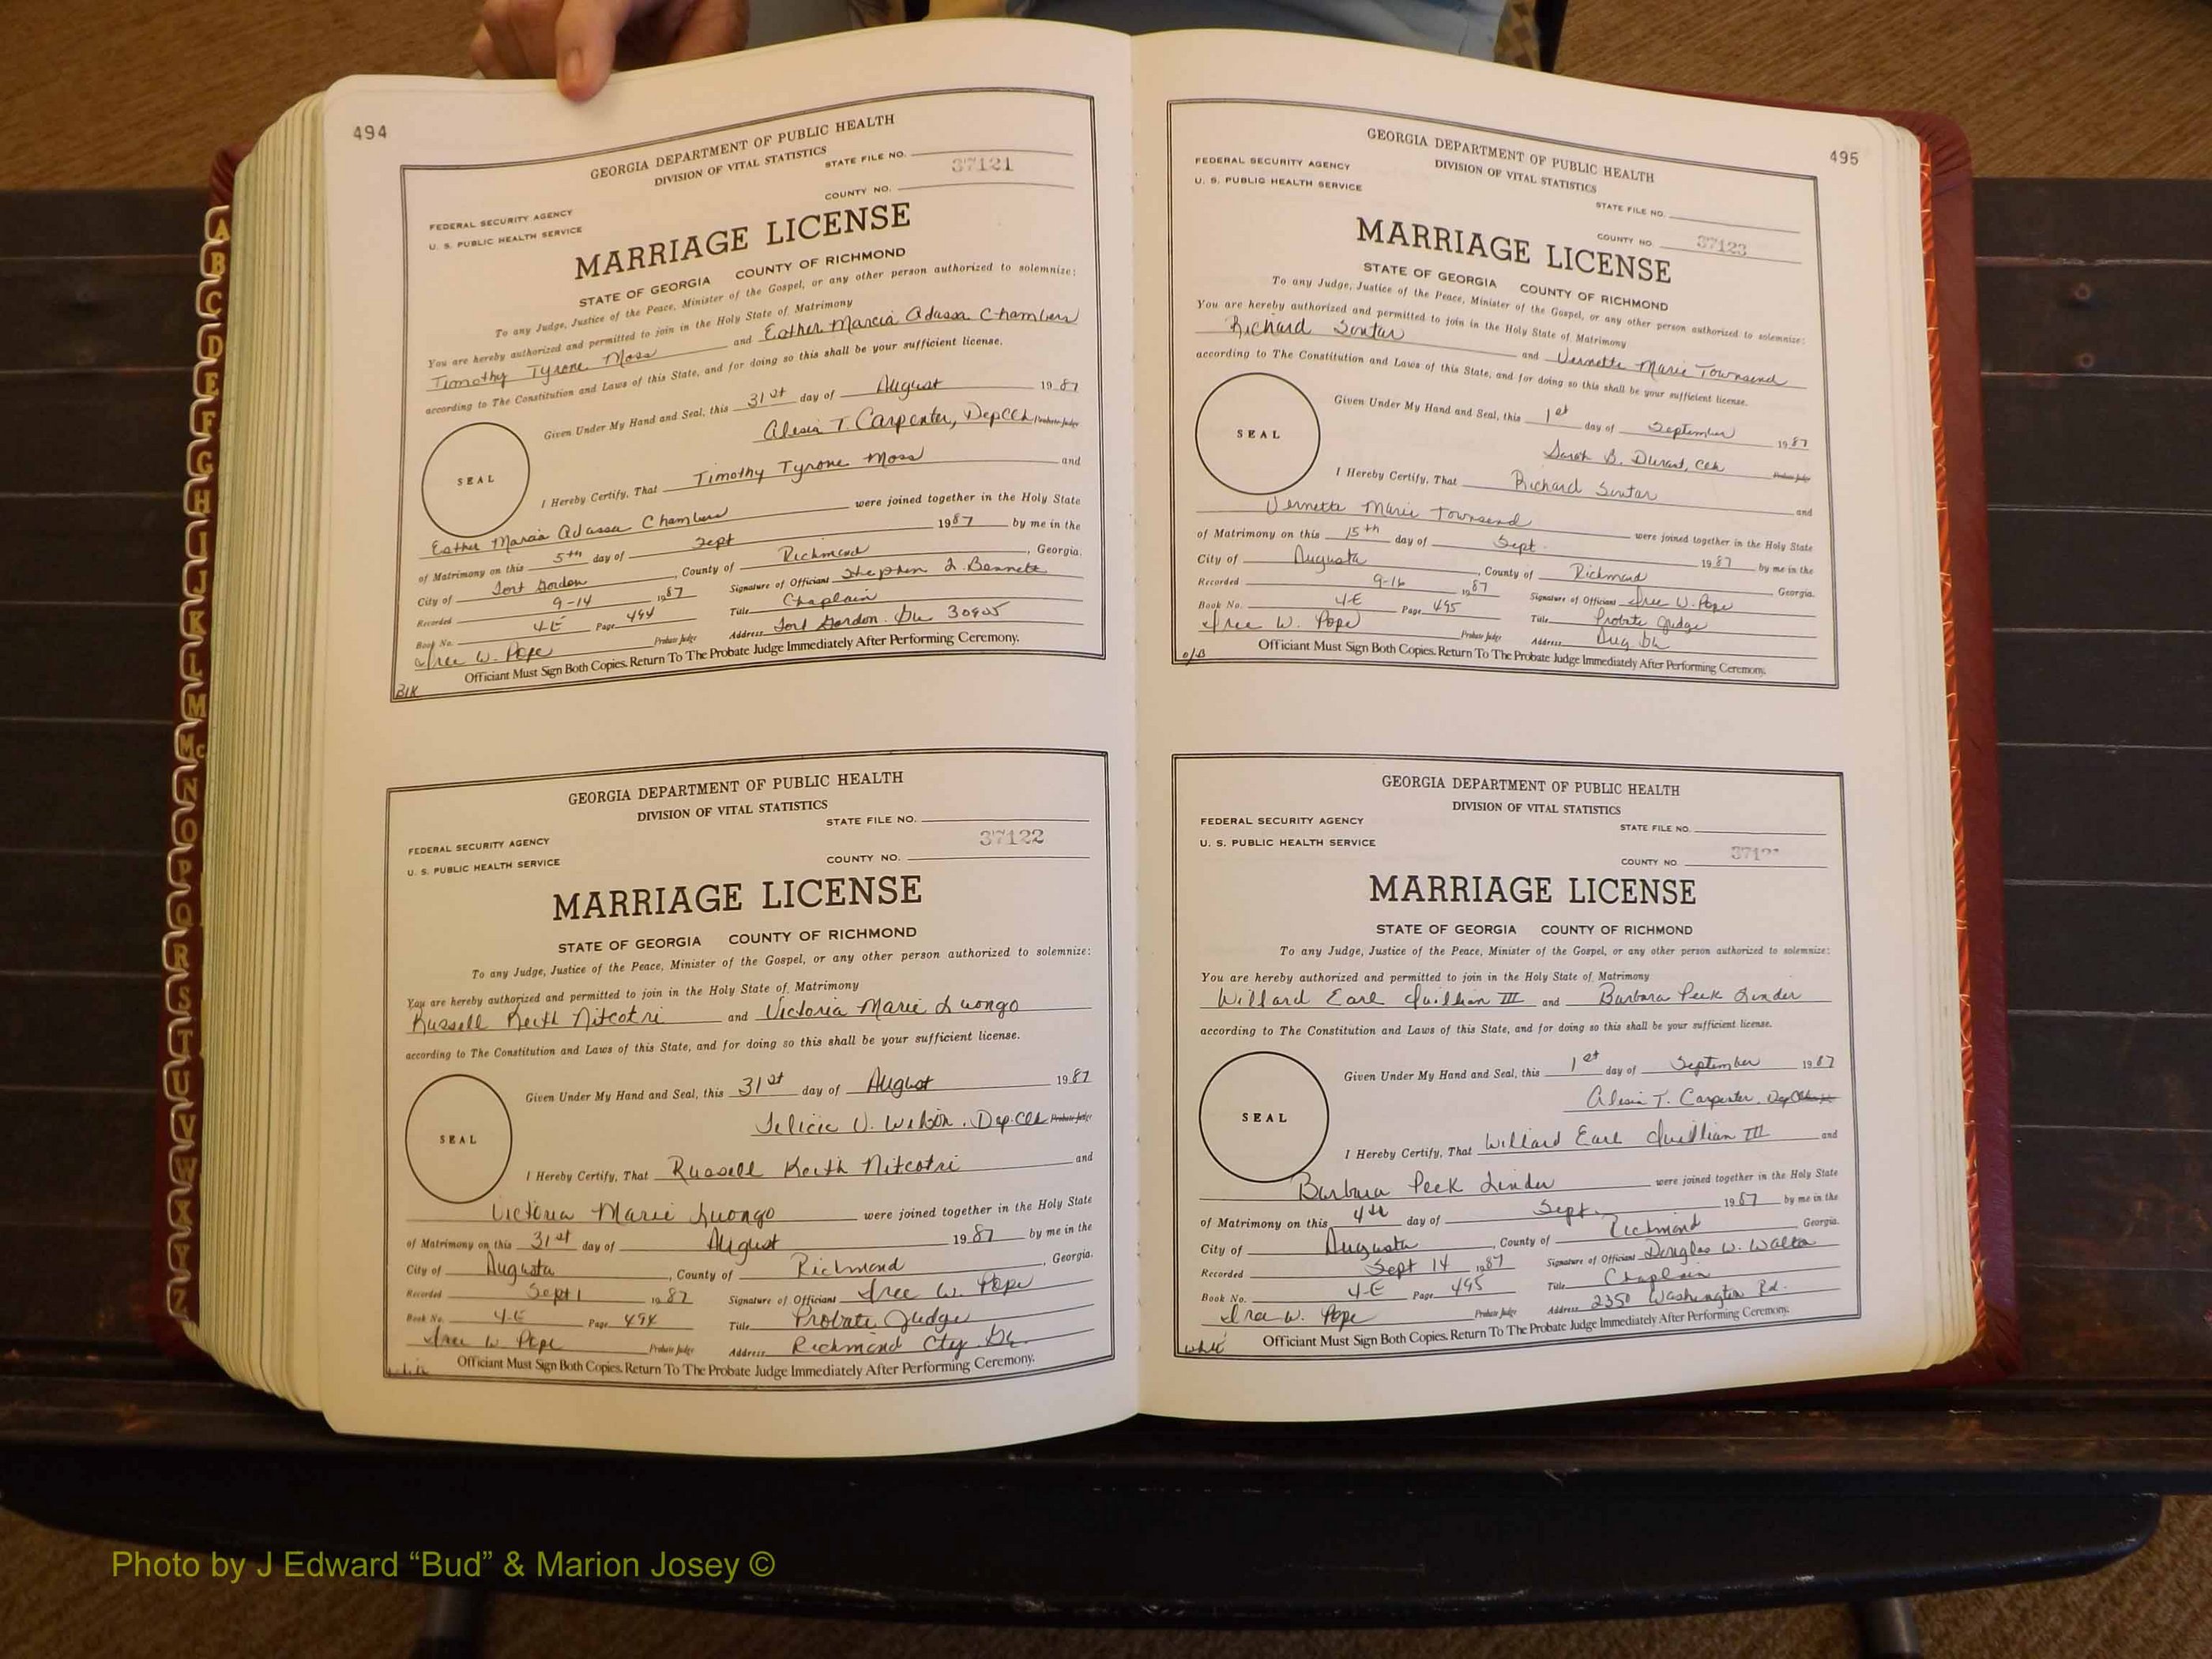 494
GEORGIA DEPARTMENT OF PUBLIC HEALTH
DIVISION OF VITAL STATISTICS
STATE FILE NO.
37121
COUNTY NO.
FEDERAL SECURITY AGENCY
U. S. PUBLIC HEALTH SERVICE
MARRIAGE LICENSE
STATE OF GEORGIA COUNTY OF RICHMOND
To any Judge, Justice of the Peace, Minister of the Gospel, or any other person authorized to solemnize:
You are hereby authorized and permitted to join in the Holy State of Matrimony
Timothy Tyrone Moss and Esther Marcia Adassa Chambers
according to The Constitution and Laws of this State, and for doing so this shall be your sufficient license.
Given Under My Hand and Seal, this 31st day of August 1987
Alesia T. Carpenter, Dep Clk Probate Judge
SEAL
I Hereby Certify, That Timothy Tyrone Moss and
Esther Marcia Adassa Chambers were joined together in the Holy State
of Matrimony on this 5th day of Sept 1987 by me in the
City of Fort Gordon, County of Richmond, Georgia.
Recorded 9-14 1987 Signature of Officiant Stephen L. Bennett
Book No. 4E Page 494 Title Chaplain
Iree W. Pope Probate Judge Address Fort Gordon. Ga 30905
Officiant Must Sign Both Copies. Return To The Probate Judge Immediately After Performing Ceremony.
Blk
GEORGIA DEPARTMENT OF PUBLIC HEALTH
DIVISION OF VITAL STATISTICS
STATE FILE NO.
37122
FEDERAL SECURITY AGENCY
U. S. PUBLIC HEALTH SERVICE
COUNTY NO.
MARRIAGE LICENSE
STATE OF GEORGIA COUNTY OF RICHMOND
To any Judge, Justice of the Peace, Minister of the Gospel, or any other person authorized to solemnize:
You are hereby authorized and permitted to join in the Holy State of Matrimony
Russell Keith Nitcotri and Victoria Marie Luongo
according to The Constitution and Laws of this State, and for doing so this shall be your sufficient license.
Given Under My Hand and Seal, this 31st day of August 1987
Felicia V. Wilson. Dep. Clk Probate Judge
SEAL
I Hereby Certify, That Russell Keith Nitcotri and
Victoria Marie Luongo were joined together in the Holy State
of Matrimony on this 31st day of August 1987 by me in the
City of Augusta, County of Richmond, Georgia.
Recorded Sept 1 1987 Signature of Officiant Iree W. Pope
Book No. 4-E Page 494 Title Probate Judge
Iree W. Pope Probate Judge Address Richmond Cty Ga
Officiant Must Sign Both Copies. Return To The Probate Judge Immediately After Performing Ceremony.
495
GEORGIA DEPARTMENT OF PUBLIC HEALTH
DIVISION OF VITAL STATISTICS
FEDERAL SECURITY AGENCY
U. S. PUBLIC HEALTH SERVICE
STATE FILE NO.
COUNTY NO. 37123
MARRIAGE LICENSE
STATE OF GEORGIA COUNTY OF RICHMOND
To any Judge, Justice of the Peace, Minister of the Gospel, or any other person authorized to solemnize:
You are hereby authorized and permitted to join in the Holy State of Matrimony
Richard and Vernette Marie Townsend
according to The Constitution and Laws of this State, and for doing so this shall be your sufficient license.
Given Under My Hand and Seal, this 1st day of September 1987
Sarah B. Durant, Clk Probate Judge
SEAL
I Hereby Certify, That Richard and
Vernette Marie Townsend were joined together in the Holy State
of Matrimony on this 15th day of Sept. 1987 by me in the
City of Augusta, County of Richmond Georgia.
Recorded 9-16 1987 Signature of Officiant Iree W. Pope
Book No. 4E Page 495 Title Probate Judge
Iree W. Pope Probate Judge Address Aug. Ga
Officiant Must Sign Both Copies. Return To The Probate Judge Immediately After Performing Ceremony.
GEORGIA DEPARTMENT OF PUBLIC HEALTH
DIVISION OF VITAL STATISTICS
FEDERAL SECURITY AGENCY
STATE FILE NO.
U. S. PUBLIC HEALTH SERVICE
COUNTY NO
MARRIAGE LICENSE
STATE OF GEORGIA COUNTY OF RICHMOND
To any Judge, Justice of the Peace, Minister of the Gospel, or any other person authorized to solemnize:
You are hereby authorized and permitted to join in the Holy State of Matrimony
Willard Earl Quillian III and Barbara Peek Linder
according to The Constitution and Laws of this State, and for doing so this shall be your sufficient license.
Given Under My Hand and Seal, this 1st day of September 1987
Alesia T. Carpenter. Dep Clk
SEAL
I Hereby Certify, That Willard Earl Quillian III and
Barbara Peek Linder were joined together in the Holy State
of Matrimony on this 4th day of Sept. 1987 by me in the
City of Augusta, County of Richmond Georgia.
Recorded Sept 14 1987 Signature of Officiant Douglas W.
Book No. 4-E Page 495 Title Chaplain
Iree W. Pope Probate Judge Address 2350 Washington Rd.
Officiant Must Sign Both Copies. Return To The Probate Judge Immediately After Performing Ceremony.
white
A
B
C
D
E
F
G
H
I
J
K
L
M
Mc
N
O
P
Q
R
S
T
U
V
W
X
Y
Z
Photo by J Edward “Bud” & Marion Josey ©